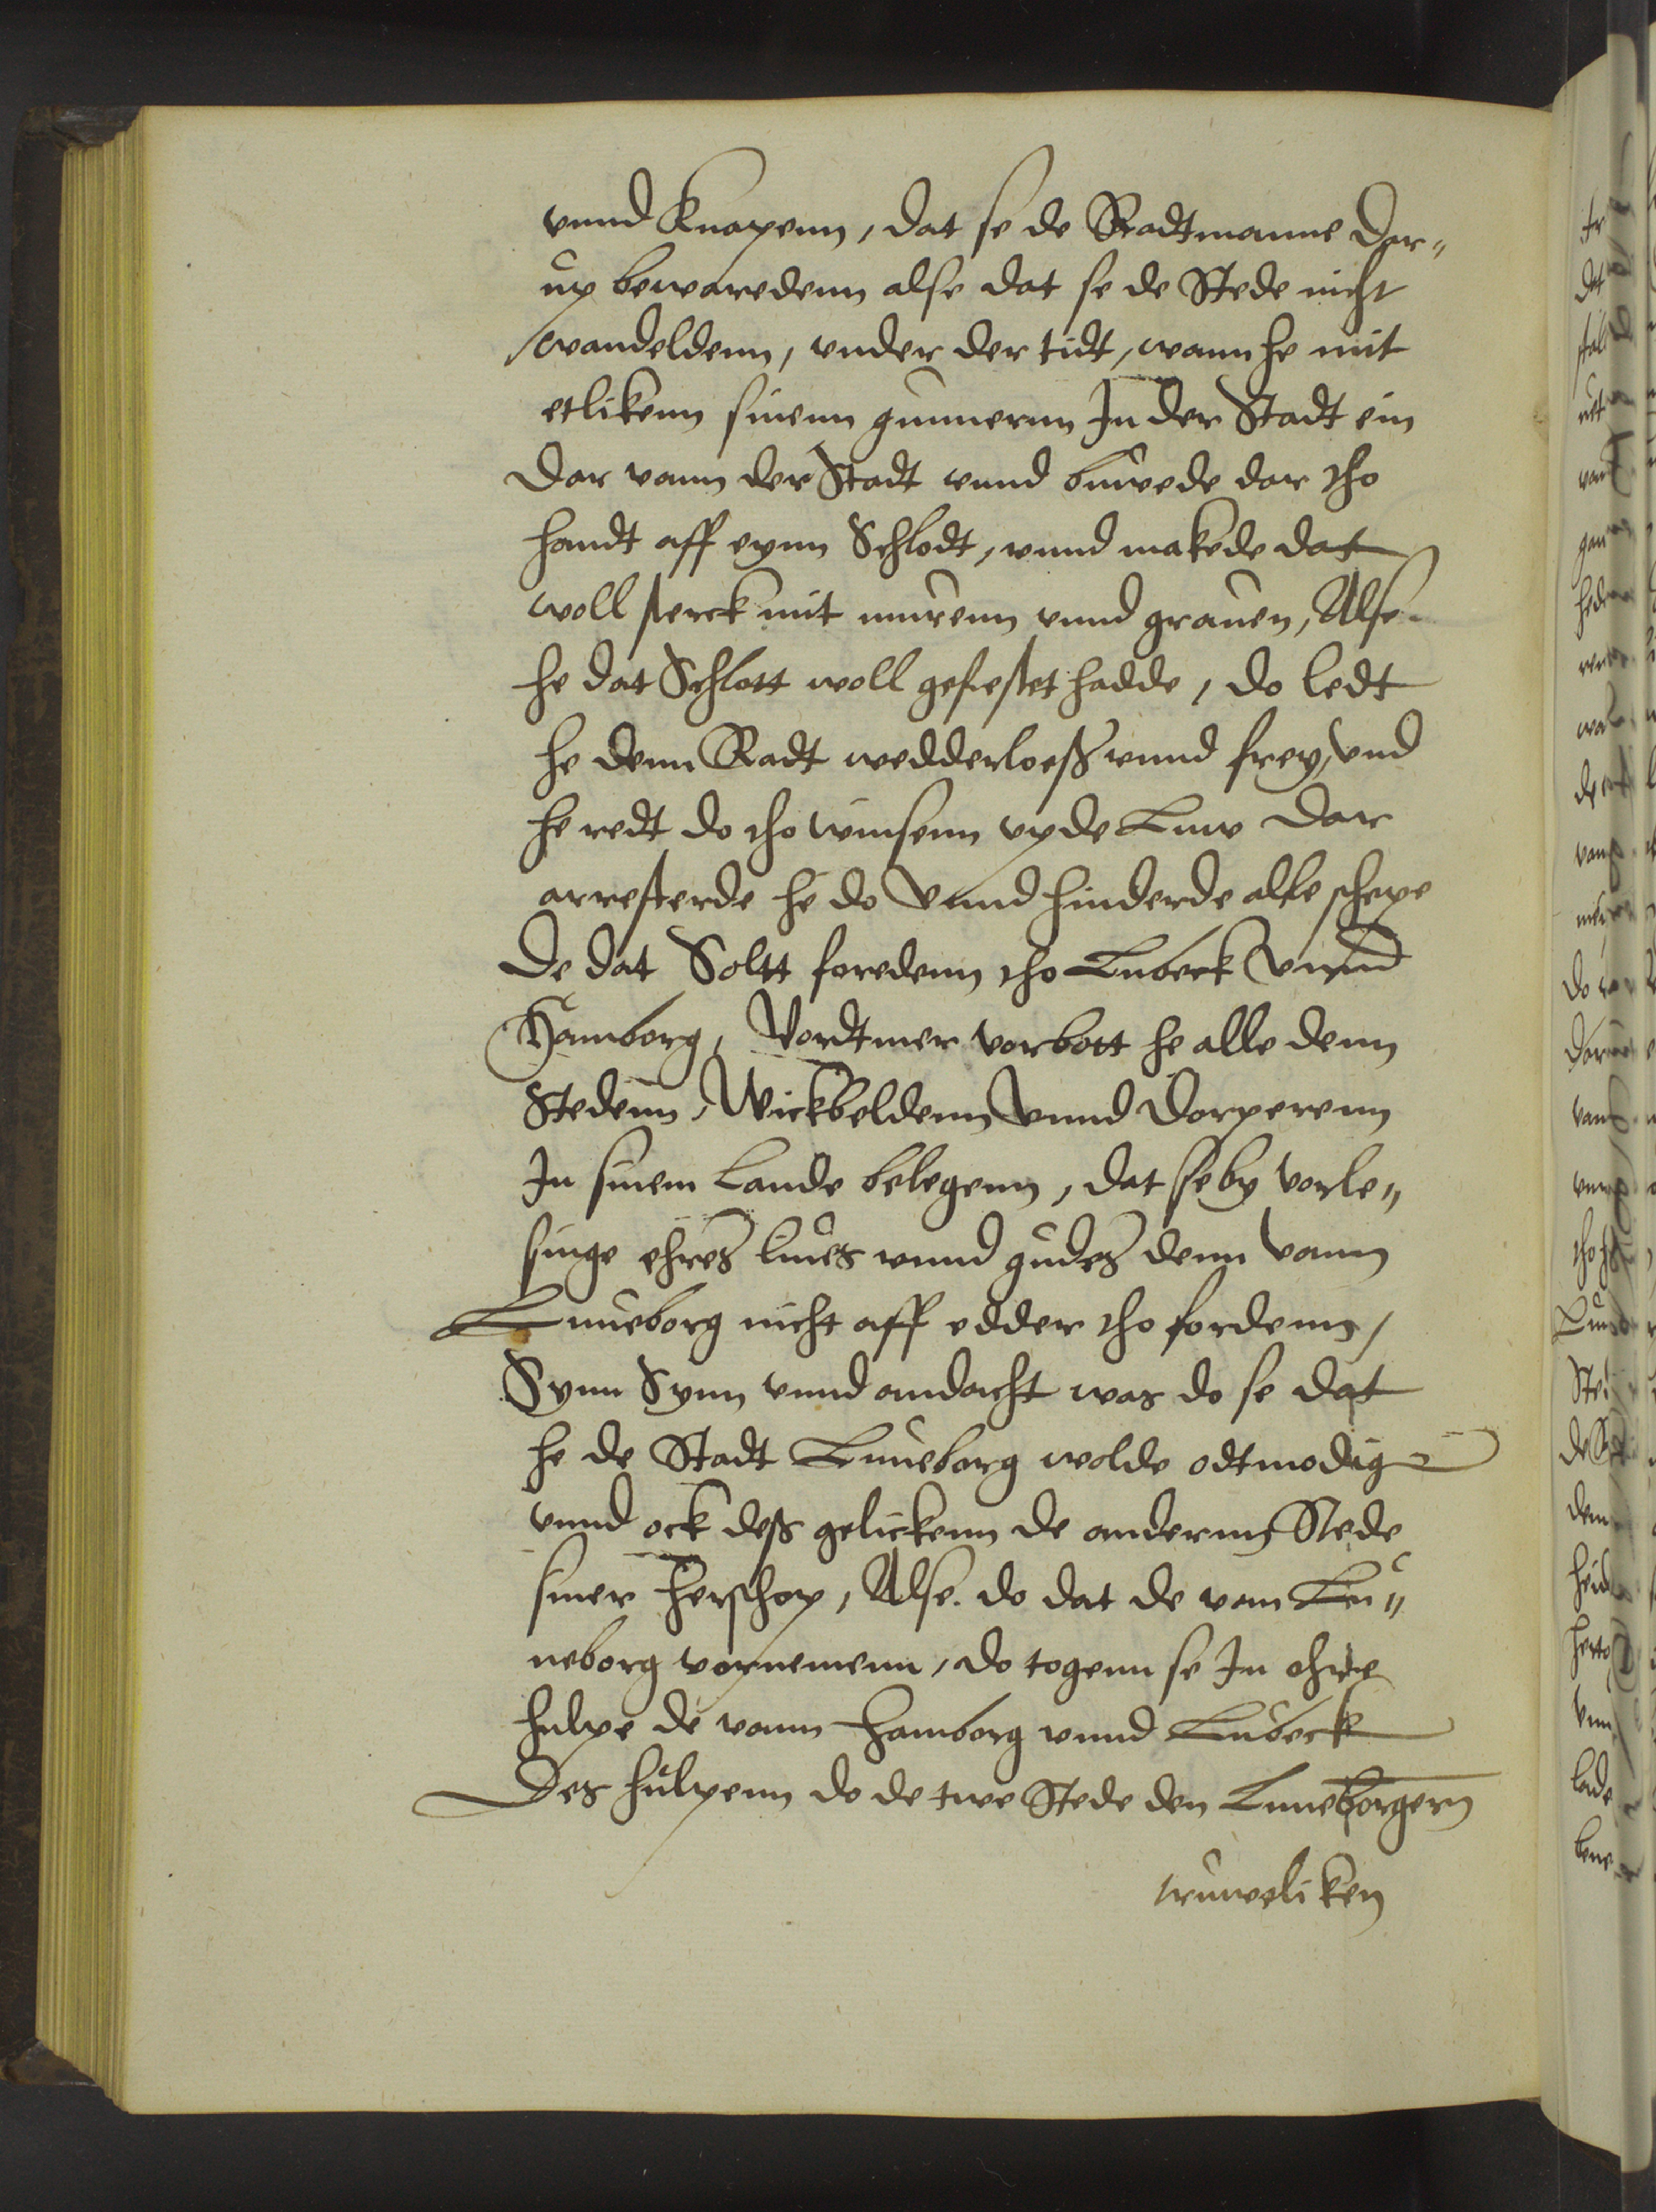 vnnd Knapenn, dat se de Radtmanne dar„
up bewaredenn alse dat se de Stede nicht
wandeldenn, vnder der tidt, wann he mit
etlikenn sinenn gunnernn In der Stadt ein
Dar vann der Stadt vnnd buwede dar tho
handt aff eynn Schlodt, vnnd makede dat
woll sterck mit murenn vnnd grauen, Alse
he dat Schlott woll gefestet hadde, do ledt
he denn Radt wedderloeß vnnd frey, vnd
he redt do tho winsenn vp de Luw Dar
arresterde he do Vnnd hinderde alle schepe
De dat Soltt foredenn tho Lubeck Vnnd
Hamborg, Vordtmer vorbott he alle denn
Stedenn, Wickbeldenn Vnnd Dorperenn
In sinem Lande belegenn, dat se by vorle„
singe ehres liues vnnd gudes denn vann
Luneborg nicht aff edder tho fordenn,
Synn Synn vnnd andacht was do se dat
he de Stadt Luneborg wolde odtmodig
vnnd ock deß gelickenn de anderenn Stede
siner Herschop, Alse do dat de van Lu„
neborg vornemenn, do togenn se In ehre
hulpe de vann Hamborg vnnd Lubeck
Des hulpenn do de twe Stede den Luneborgern
truweliken